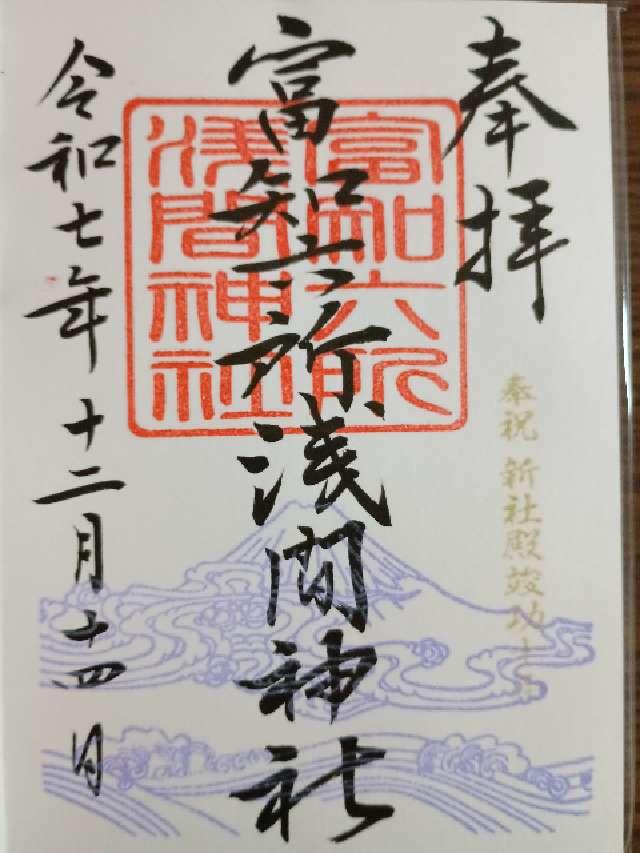 奉拝
奉祝 新社殿竣功
富知六所浅間神社
富知六所
浅間神社
令和七年 十二月十四日